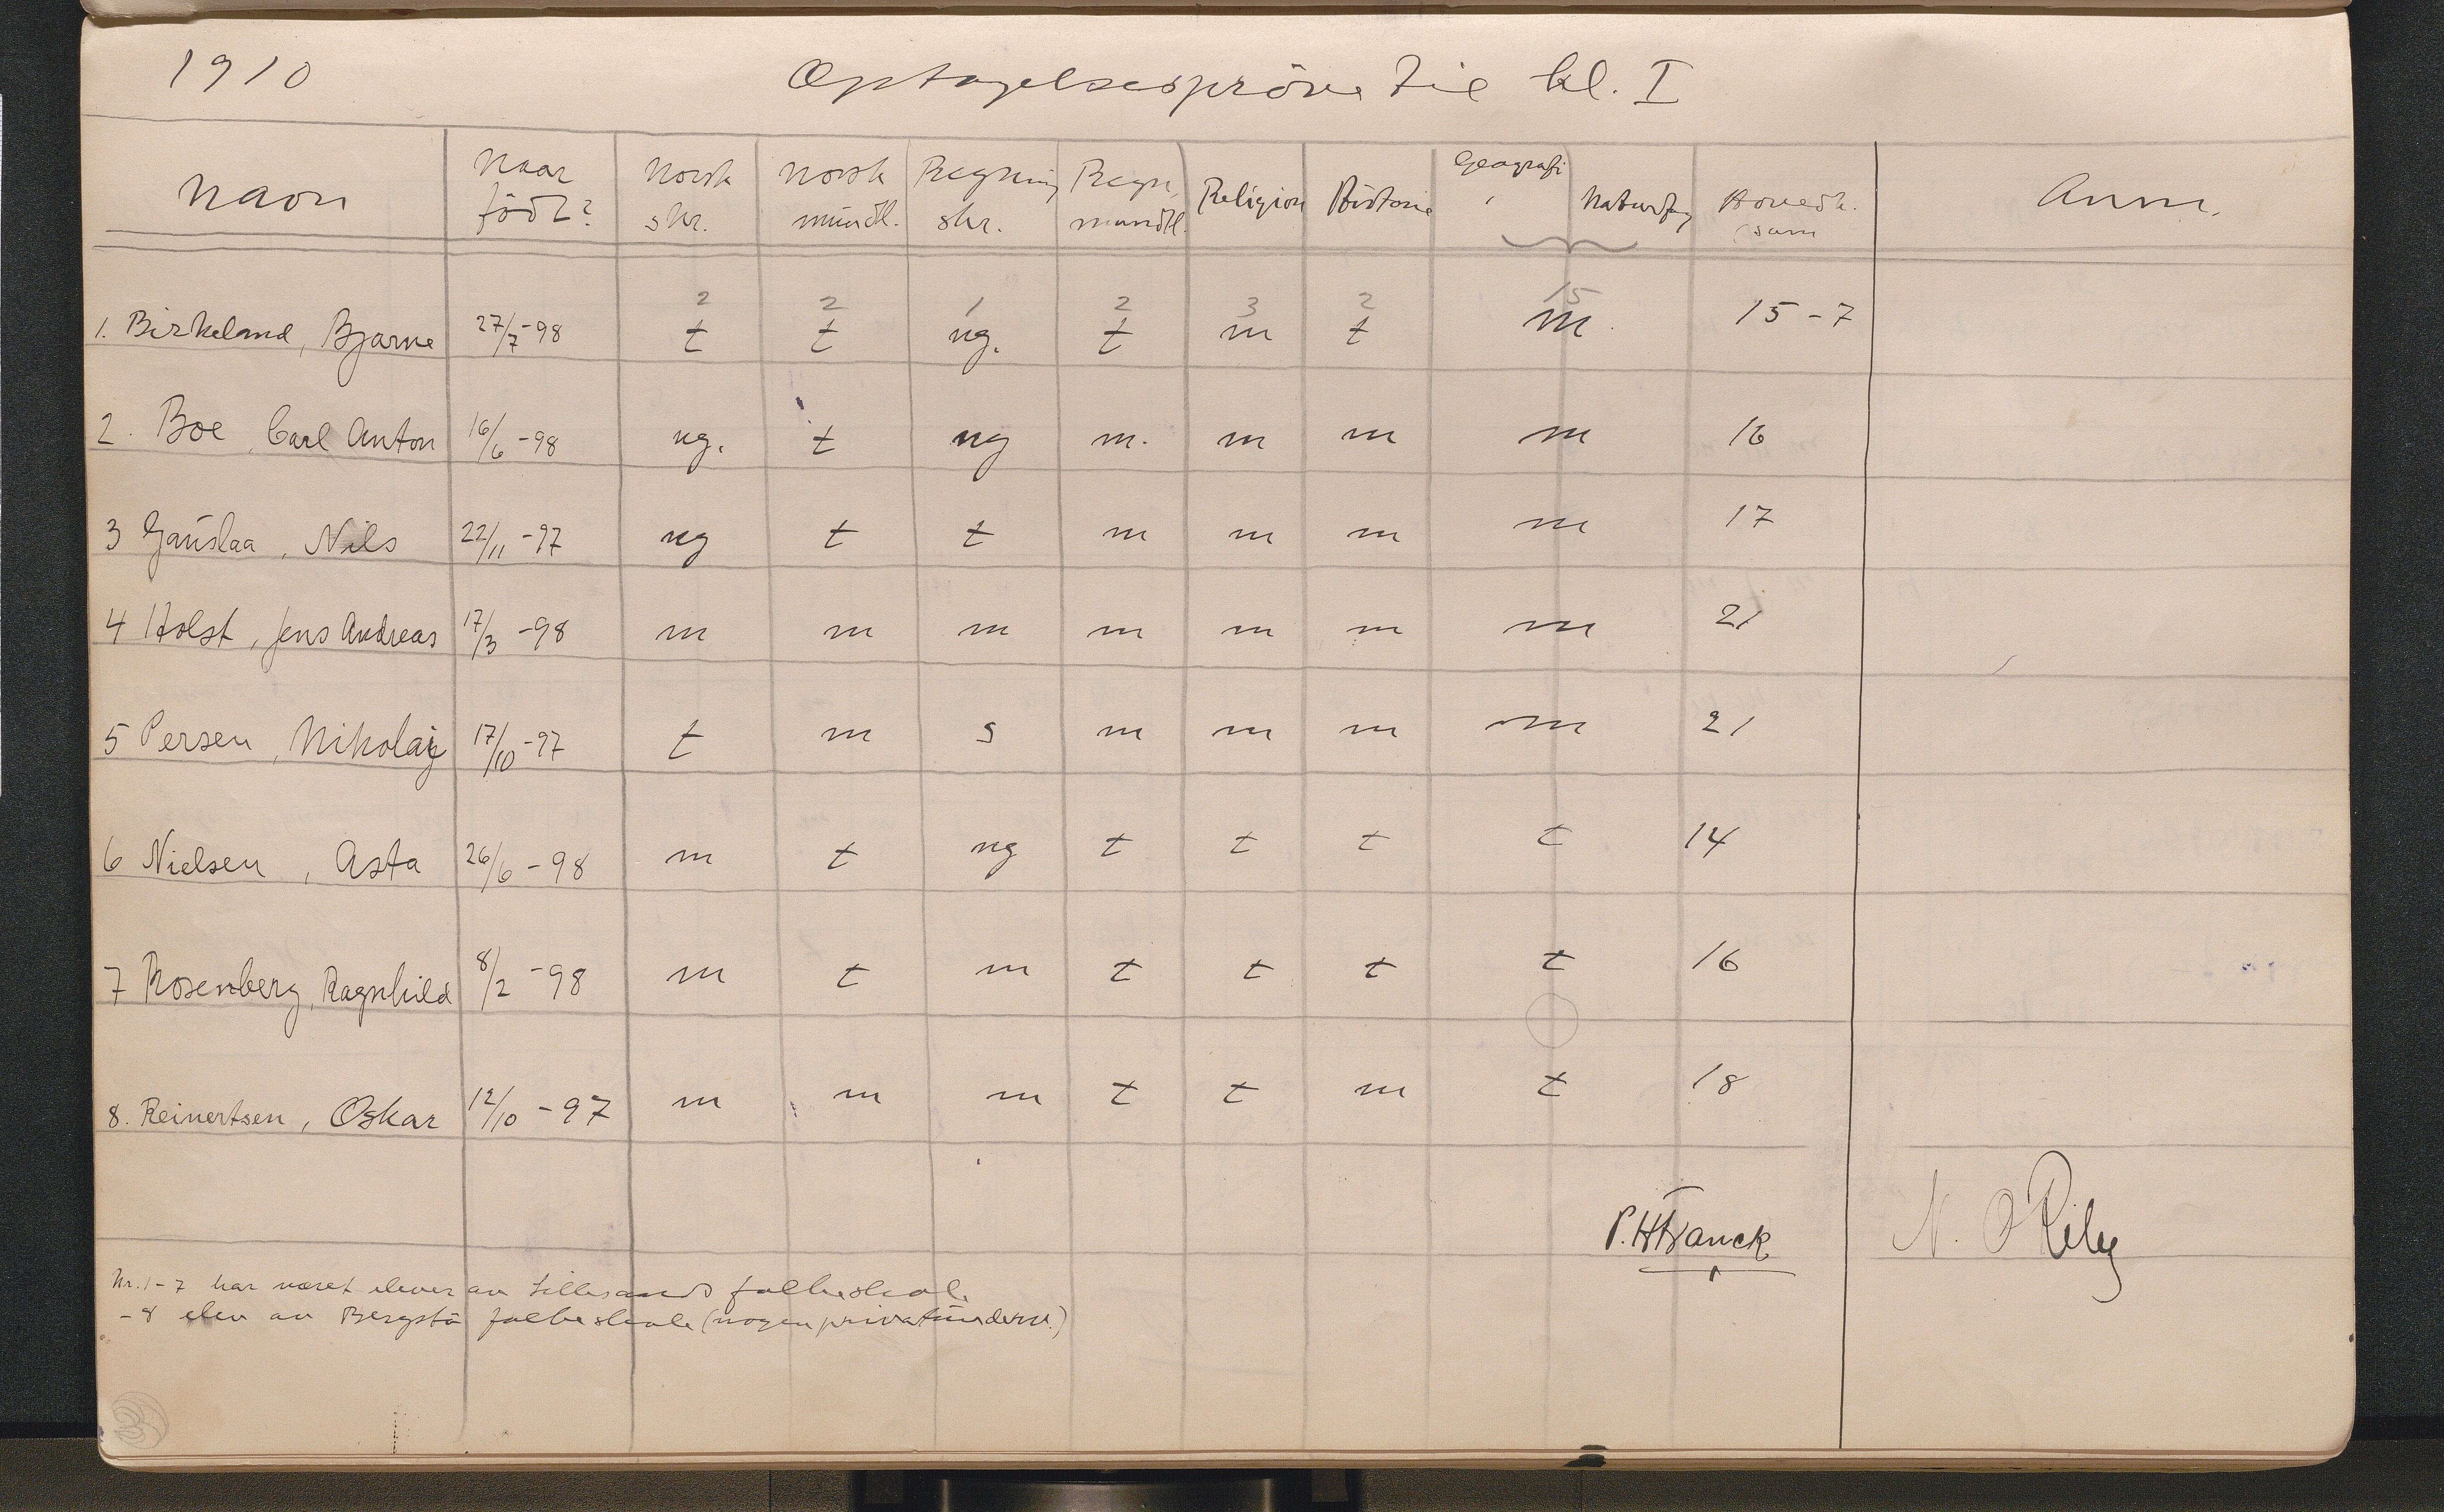 1910 Optagelsesprøve til kl. I
Navn Naar født? Norsk skr. Norsk mündtl. Regning skr. Regn. mundtl. Religion Historie Geografi, Naturfag Hovedk. sum Anm.
2 2 1 2 3 2 15
1. Birkeland, Bjarne 27/7-98 t t ng. t m t m. 15-7
2. Boe, Carl Anton 16/6-98 ng. t ng m. m m m 16
3 Gauslaa, Nils 22/11-97 ng t t m m m m 17
4 Holst, Jens Andreas 17/3-98 m m m m m m m 21
5 Persen, Nikolaij 17/10-97 t m s m m m m 21
6 Nielsen, Asta 26/6-98 m t ng t t t t 14
7 Rosenberg, Ragnhild 8/2-98 m t m t t t t 16
8. Reinertsen, Oskar 12/10-97 m m m t t m t 18
P. H Franck N. O
Nr. 1-7 har været elever av Lillesands folkeskole
-8 elev av Bergstø folkeskole (nogen privatünderv.)
3